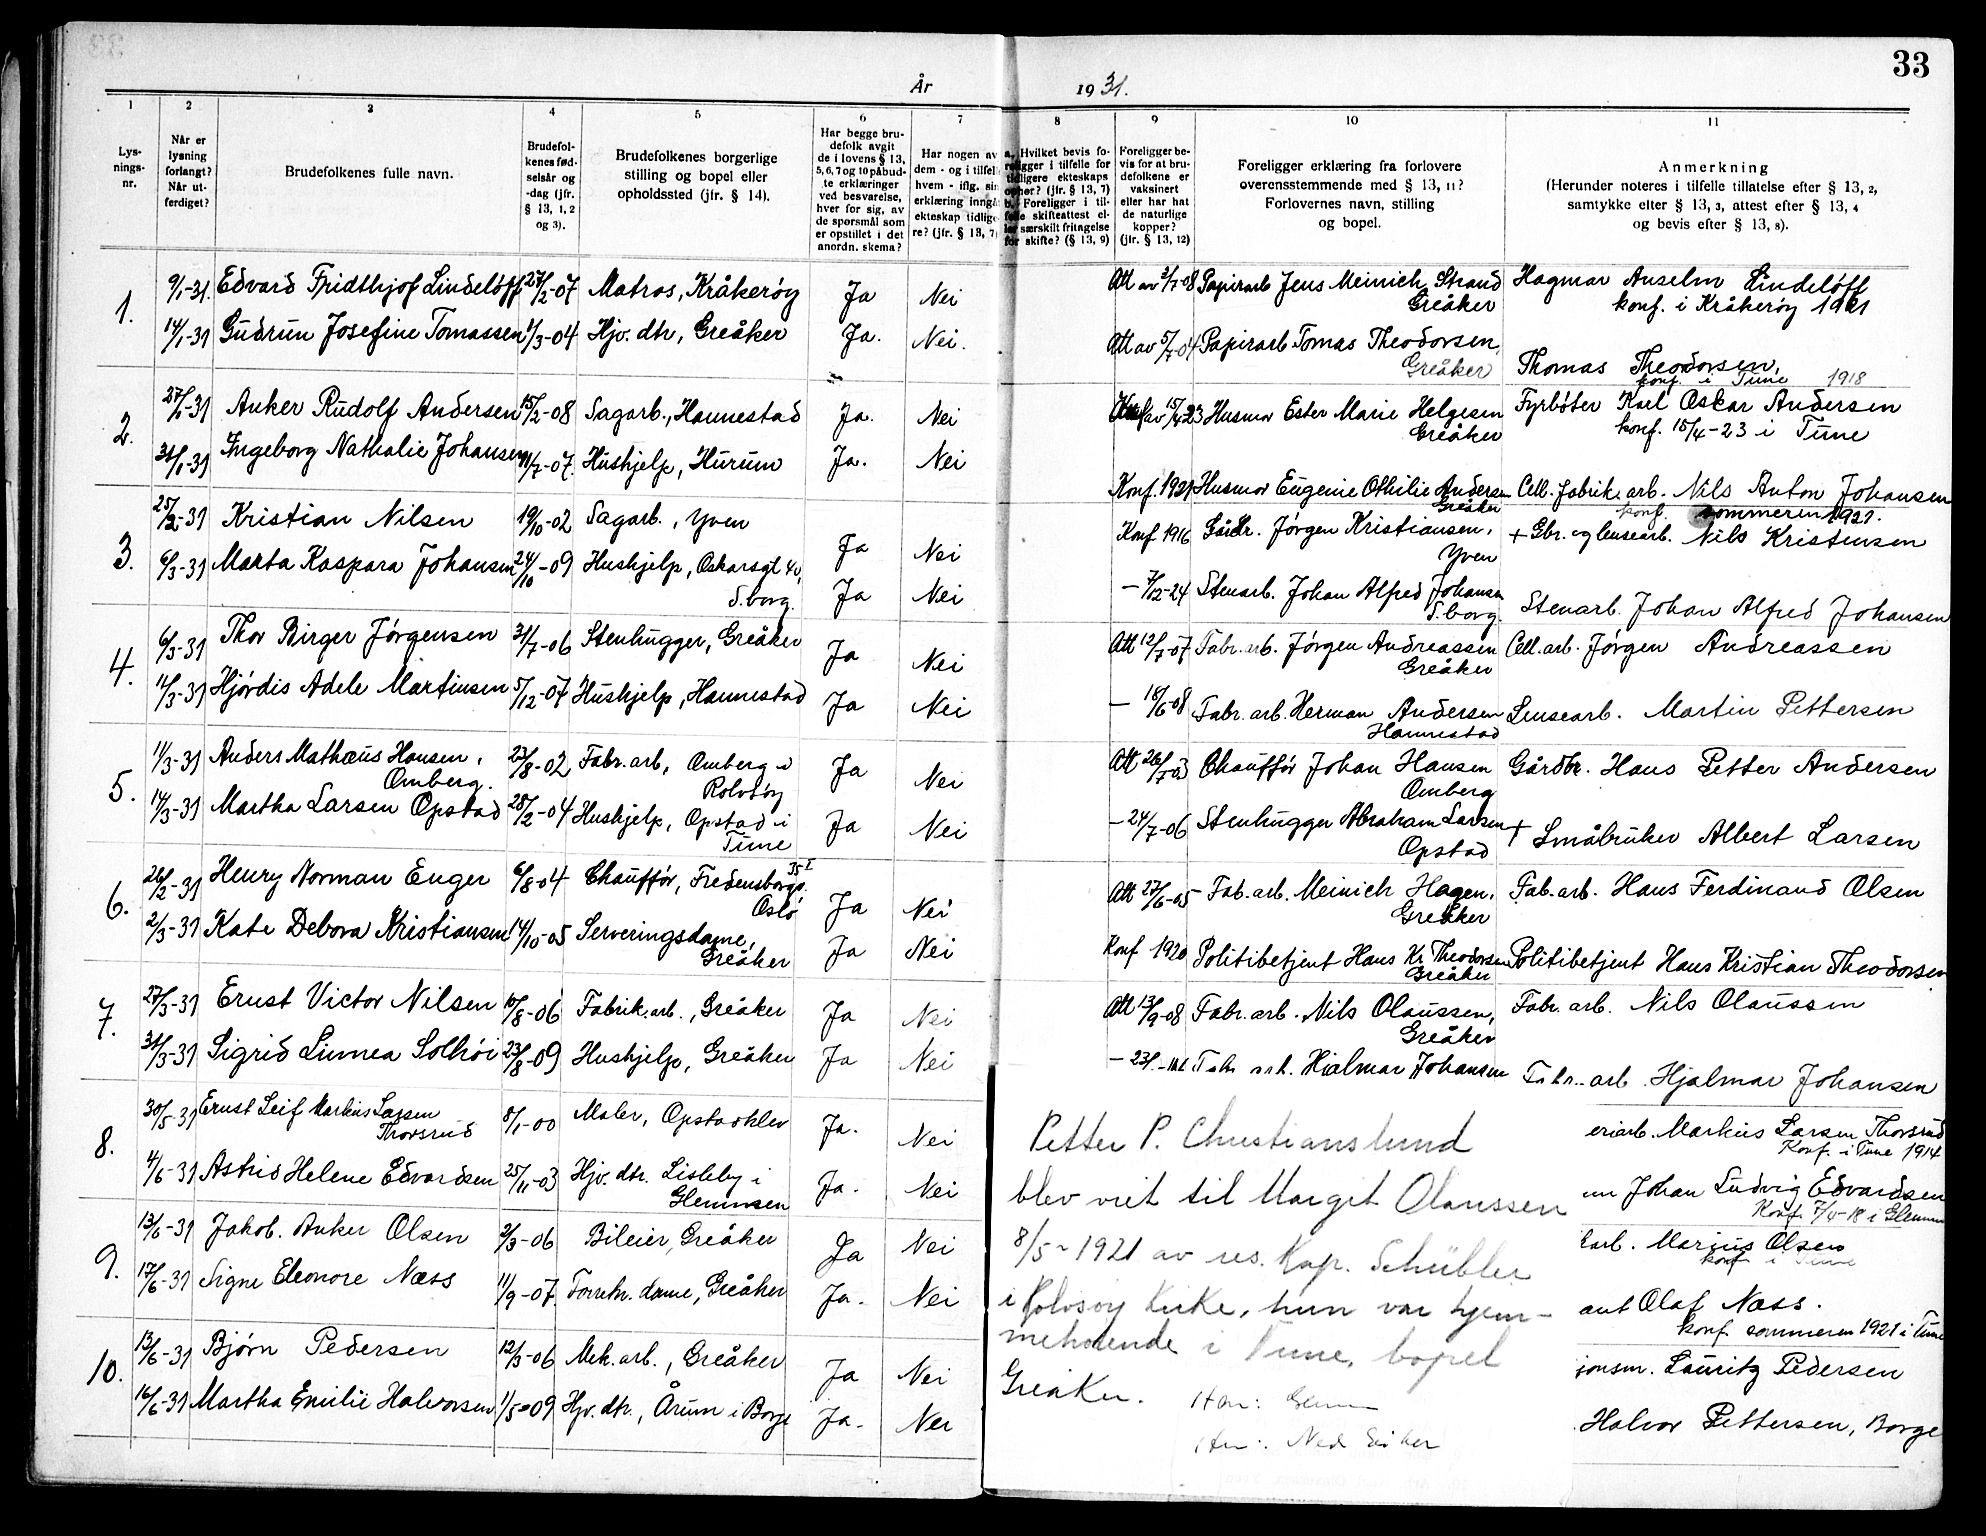 33
År 1931.
1 2 3 4 5 6 7 8 9 10 11
Lys-
nings-
nr.
Når er
lysning
forlangt?
Når ut-
ferdiget?
Brudefolkenes fulle navn.
Brudefol-
kenes fød-
selsår og
-dag (jfr.
§ 13, 1, 2
og 3).
Brudefolkenes borgerlige
stilling og bopel eller
opholdssted (jfr. § 14).
Har begge bru-
defolk avgit
de i lovens § 13,
5, 6, 7 og 10 påbud-
te erklæringer
ved besvarelse,
hver for sig, av
de spørsmål som
er opstillet i det
anordn. skema?
Har nogen av
dem - og i tilfelle
hvem - iflg. sin
erklæring inngå
ekteskap tidlige-
re? (jfr. § 13, 7)
a. Hvilket bevis fo-
religger i tilfelle for
tidligere ekteskaps
ophør? (jfr. § 13, 7)
b. Foreligger i til-
felle skifteattest el-
ler særskilt fritagelse
for skifte? (§ 13, 9)
Foreligger be-
vis for at bru-
defolkene er
vaksinert
eller har hat
de naturlige
kopper?
(jfr. § 13, 12)
Foreligger erklæring fra forlovere
overensstemmende med § 13, 11?
Forlovernes navn, stilling
og bopel.
Anmerkning
(Herunder noteres i tilfelle tillatelse efter § 13, 2,
samtykke efter § 13, 3, attest efter § 13, 4
og bevis efter § 13, 8).
1. 9/1-31. Edvard Fridthjof Lindeløff 27/2-07 Matros, Kråkerøy Ja Nei Att av 3/7-08 Papirarb Jens Meinich Strand Hagmar Anselm Lindeløff
Greåker konf. i Kråkerøy 1921
14/1-31 Gudrun Josefine Tomassen 1/3-04 Hjv. dtr, Greåker Ja. Nei. Att av 5/7-04 Papirarb Tomas Theodorsen,
Greåker Thomas Theodorsen,
konf. i Tune 1918
2. 27/1-31 Anker Rudolf Andersen 15/2-08 Sagarb., Hannestad Ja. Nei Konf av 15/4 23 Husmor Ester Marie Helgesen Fyrbøter Karl Oskar Andersen
Greåker konf. 15/4-23 i Tune
31/1-31 Ingeborg Nathalie Johansen 11/7-07. Hushjelp, Hurum Ja. Nei Konf. 1921 Husmor Eugenie Othilie Andersen Cell. fabrik. arb. Nils Anton Johansen
Greåker konf. sommeren 1921.
3. 25/2-31 Kristian Nilsen 19/10-02 Sagarb., Yven Ja Nei Konf 1916 Gårdbr. Jørgen Kristiansen, + Gbr. og lensearb. Nils Kristensen
Yven
6/3-31 Marta Kaspara Johansen 24/10-09 Hushjelp, Oskarsgt 40, Ja Nei - 7/12-24 Stenarb. Johan Alfred Johansen Stenarb. Johan Alfred Johansen
S.borg. S.borg.
4. 6/3-31 Thor Birger Jørgensen 31/7-06 Stenhugger, Greåker Ja Nei Att 12/7-07 Fabr. arb. Jørgen Andreassen Cell. arb. Jørgen Andreassen
Greåker
11/3-31 Hjørdis Adele Martinsen 5/12-07 Hushjelp, Hannestad Ja Nei - 18/6-08 Fabr. arb. Herman Andersen Lensearb. Martin Pettersen
Hannestad
5. 11/3-31 Anders Mathæus Hansen, 23/8-02 Fabr. arb, Omberg i Ja Nei Att 26/7-03 Chauffør Johan Hansen Gårdbr. Hans Petter Andersen
Omberg. Rolvsøy Omberg
14/3-31 Martha Larsen Opstad 28/2-04 Hushjelp, Opstad i Ja Nei - 24/7-06 Stenhugger Abraham Larsen + Småbruker Albert Larsen
Tune Opstad
6. 26/2-31 Henry Norman Enger 6/8-04 Chauffør, Fredensborgv. 35 I Ja Nei Att 27/6-05 Fab. arb. Meinich Hagen, Fab. arb. Hans Ferdinand Olsen
Oslo Greåker
2/3-31 Kate Debora Kristiansen 14/10-05 Serveringsdame, Ja Nei Konf 1920 Politibetjent Hans Kr. Theodorsen Politibetjent Hans Kristian Theodorsen
Greåker Greåker
7. 27/3-31 Ernst Victor Nilsen 10/8-06 Fabrik. arb., Greåker Ja Nei Att 13/9-08 Fabr. arb. Nils Olaussen, Fabr. arb. Nils Olaussen
Greåker
31/3-31 Sigrid Linnea Solhøi 23/8-09 Hushjelp, Greåker Ja Nei Fabr. arb. Hjalmar Johansen Fabr. arb. Hjalmar Johansen
8. 30/5-31 Ernst Leif Markus Larsen 8/1-00 Maler, Opstadklev Ja. Nei eriarb. Markus Larsen Thorsrud
Thorsrud Konf. i Tune 1914
4/6-31 Astrid Helene Edvardsen 25/11-03 Hjv. dtr. Lisleby i Ja. Nei Johan Ludvig Edvardsen
Glemmen Konf. 7/4-18 i Glemmen
9. 13/6-31 Jakob. Anker Olsen 2/3-06 Bileier, Greåker Ja Nei arb. Marius Olsen
konf i Tune
17/6-31 Signe Eleonore Næss 11/9-07. Forretn. dame, Greåker Ja. Nei ant Olaf Næss.
konf. sommeren 1921 i Tune
10. 13/6-31 Bjørn Pedersen 12/3-06 Mek. arb., Greåker Ja Nei jonsm. Lauritz Pedersen
16/6-31 Martha Emilie Halvorsen 1/5-09 Hjv. dtr., Årum i Borge Ja. Nei Halvor Pettersen, Borge
Petter P. Christianslund
blev viet til Margit Olaussen
8/5-1921 av res. Kap. Schübler
i Rolvsøy Kirke, hun var hjem-
mehørende i Tune, bopel
Greåker.